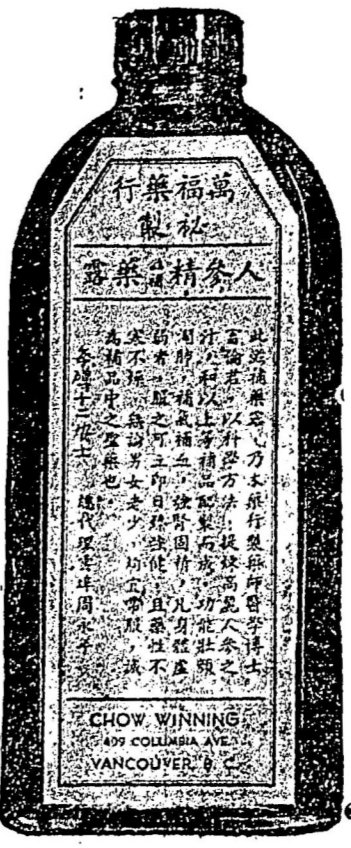 萬福藥行
秘製
人參精補藥露
此滋補藥露，乃本藥行製藥師醫學博士
論君，以科學方法，提煉高麗人參之
汁，和以上等補品配製而成。功能壯
潤肺，補氣補血，強腎固精，凡身體虛
弱者，服之可立即日臻強健，且藥性不
寒不燥，無論男女老少，均宜常服，誠
為補品中之聖藥也
十二安士 總代理雲埠周永
CHOW WINNING
409 COLUMBIA AVE.
VANCOUVER, B. C.